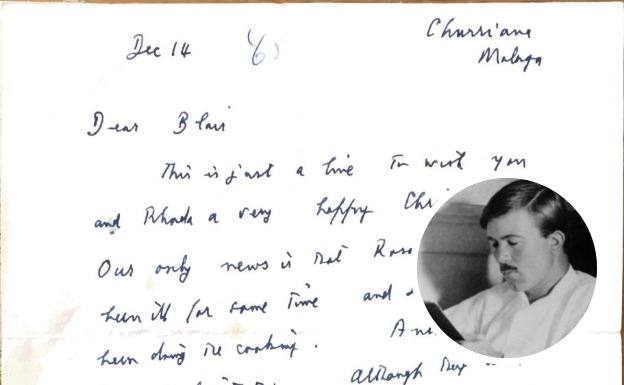 Churriana
Malaga
Dec 14
Dear Blair
This is just a line to wish you
and Rhoda a very happy Chri
Our only news is that Rosa
been ill for some time and
been doing the cooking.
Although they